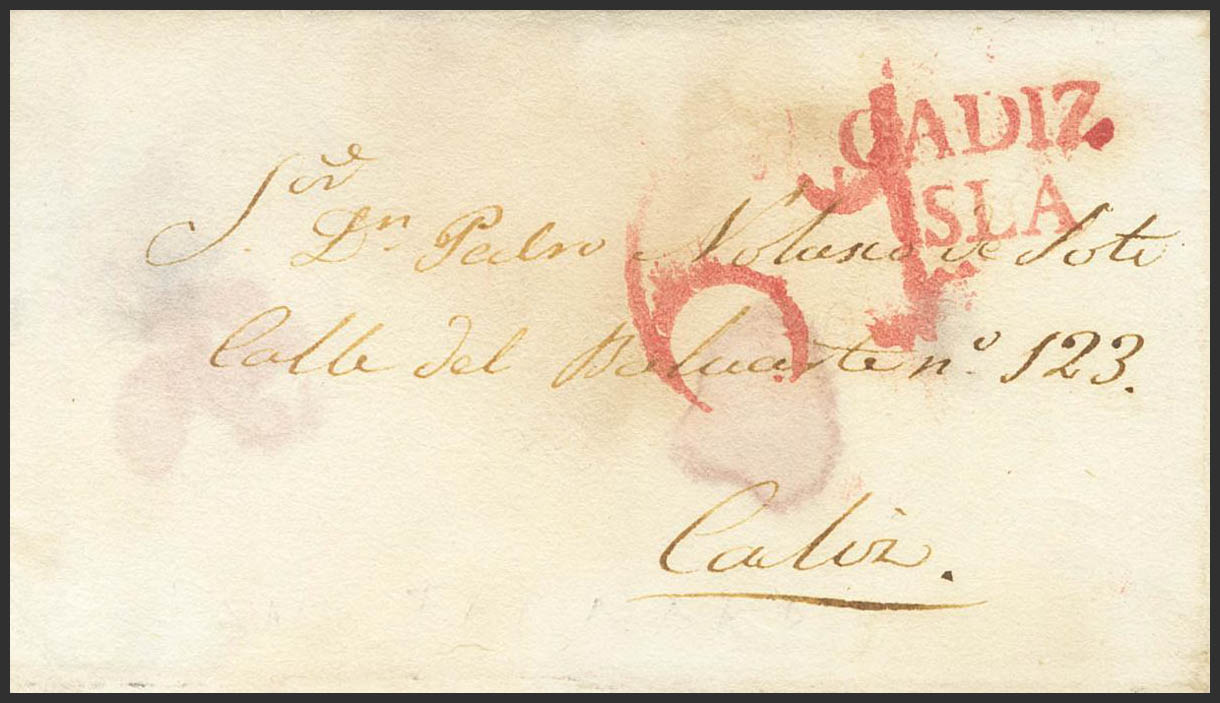 CADIZ
ISLA
Sor
S. Dn Pedro Nolasco de Soto
Calle del Baluarte nº 123.
Cadiz.